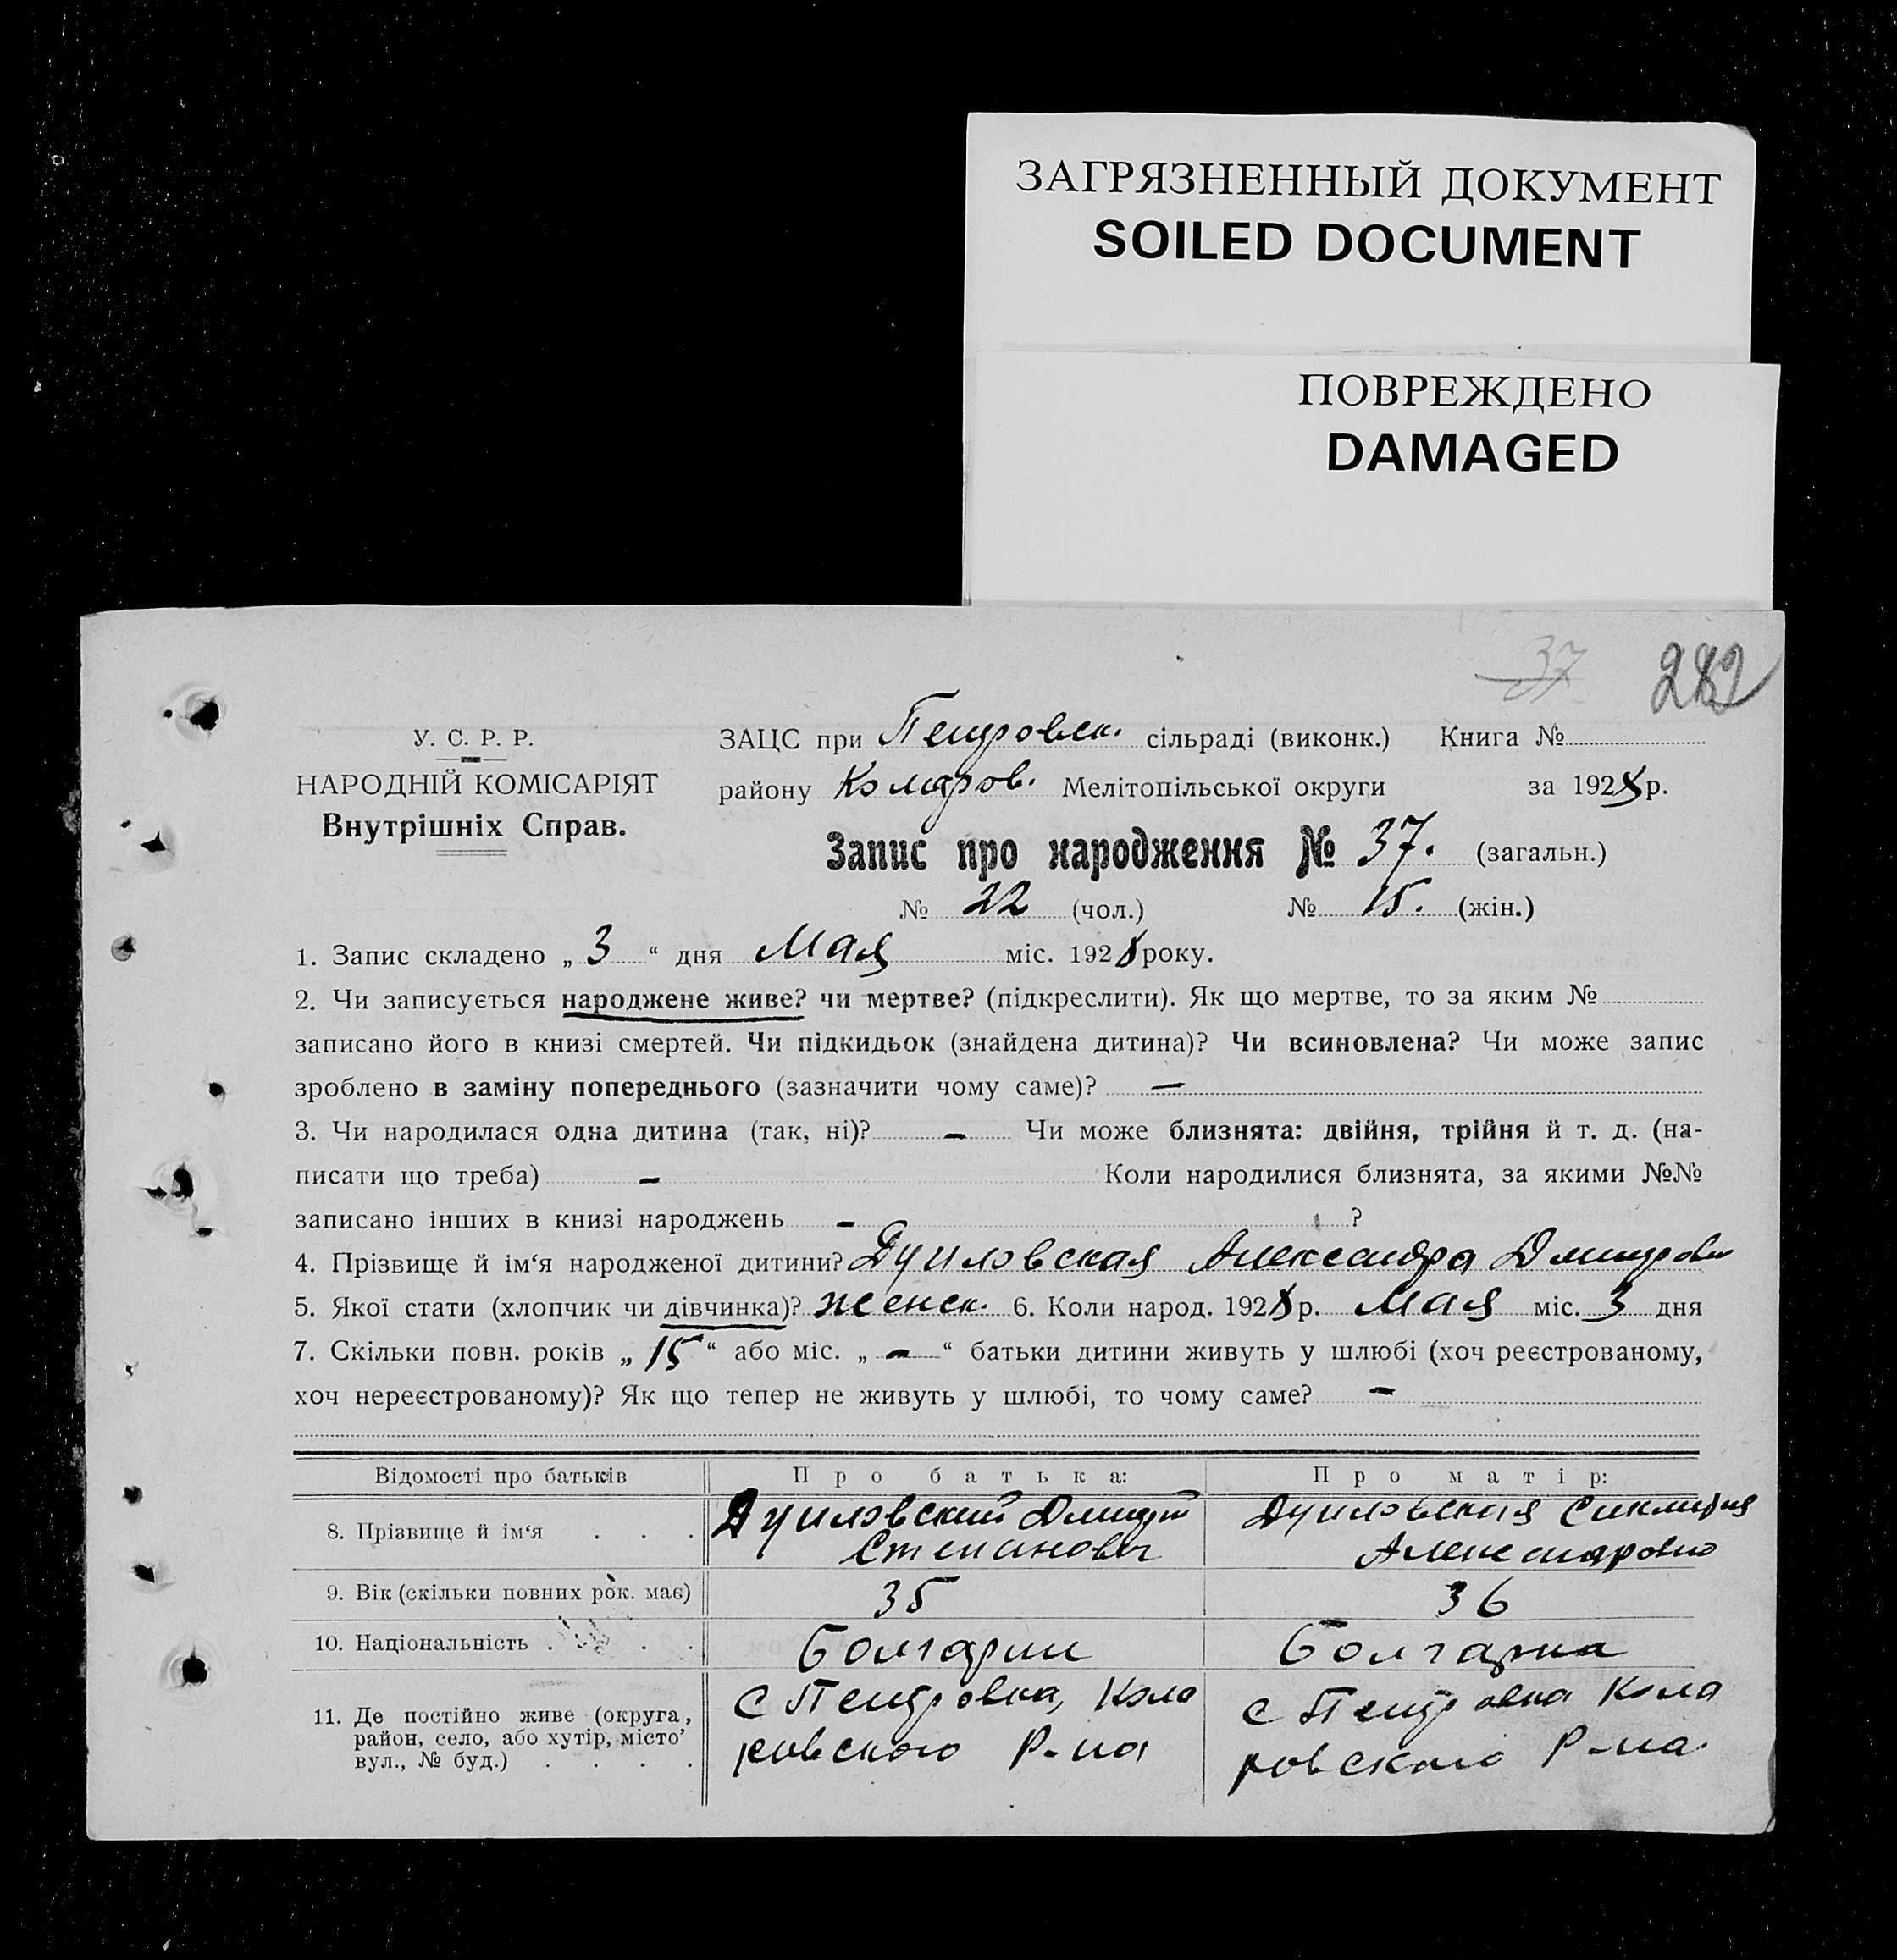 ЗАГРЯЗНЕННЫЙ ДОКУМЕНТ
SOILED DOCUMENT
ПОВРЕЖДЕНО
DAMAGED
37 282
У. С. Р. Р.
НАРОДНІЙ КОМІСАРІЯТ
Внутрішніх Справ.
ЗАЦС при Петровск. сільраді (виконк.) Книга №
району Коларов. Мелітопільської округи за 1928 р.
Запис про народження № 37. (загальн.)
№ 22 (чол.) № 15. (жін.)
1. Запис складено „ 3 “ дня Мая міс. 1928 року.
2. Чи записується народжене живе? чи мертве? (підкреслити). Як що мертве, то за яким №
записано його в книзі смертей. Чи підкидьок (знайдена дитина)? Чи всиновлена? Чи може запис
зроблено в заміну попереднього (зазначити чому саме)? —
3. Чи народилася одна дитина (так, ні)? — Чи може близнята: двійня, трійня й т. д. (на-
писати що треба) — Коли народилися близнята, за якими №№
записано інших в книзі народжень — ?
4. Прізвище й ім‘я народженої дитини? Александра Дмитровн
5. Якої стати (хлопчик чи дівчинка)? женск. 6. Коли народ. 1928 р. Мая міс. 3 дня
7. Скільки повн. років „ 15 “ або міс. „ — “ батьки дитини живуть у шлюбі (хоч реєстрованому,
хоч нереєстрованому)? Як що тепер не живуть у шлюбі, то чому саме? —
Відомості про батьків Про батька: Про матір:
8. Прізвище й ім‘я . . . Дмитр
Степанович Александровна
9. Вік (скільки повних рок. має) 35 36
10. Національність . . . . Болгарин Болгарка
11. Де постійно живе (округа,
район, село, або хутір, місто’
вул., № буд.) . . . .
С Петровка, Кола
ровского Р-на
с Петровка Кола
ровского Р-на